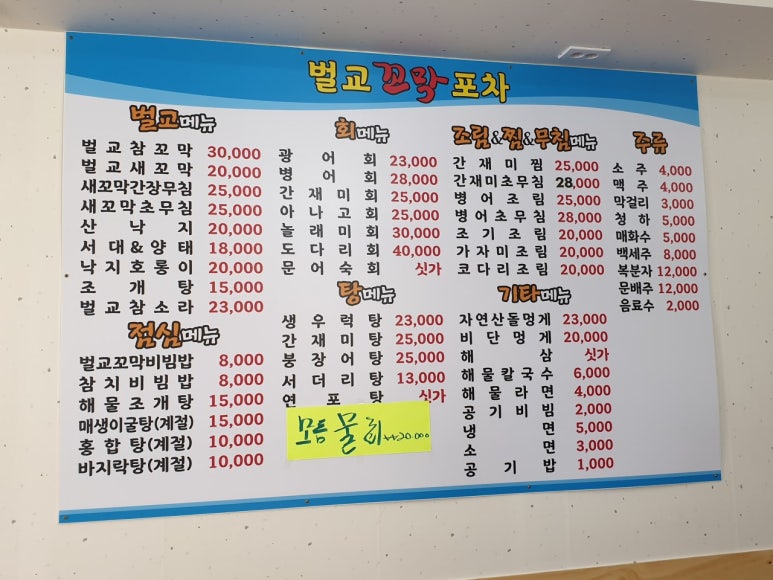 벌교꼬막포차
벌교메뉴
벌교참꼬막 30,000
벌교새꼬막 20,000
새꼬막간장무침 25,000
새꼬막초무침 25,000
산낙지 20,000
서대&양태 18,000
낙지호롱이 20,000
조개탕 15,000
벌교참소라 23,000
점심메뉴
벌교꼬막비빔밥 8,000
참치비빔밥 8,000
해물조개탕 15,000
매생이굴탕(계절) 15,000
홍합탕(계절) 10,000
바지락탕(계절) 10,000
회메뉴
광어회 23,000
병어회 28,000
간재미회 25,000
아나고회 25,000
놀래미회 30,000
도다리회 40,000
문어숙회 싯가
탕메뉴
생우럭탕 23,000
간재미탕 25,000
붕장어탕 25,000
서더리탕 13,000
연포탕 싯가
모듬물회 20.000
조림&찜&무침메뉴
간재미찜 25,000
간재미초무침 28,000
병어조림 25,000
병어초무침 28,000
조기조림 20,000
가자미조림 20,000
코다리조림 20,000
기타메뉴
자연산돌멍게 23,000
비단멍게 20,000
해삼 싯가
해물칼국수 6,000
해물라면 4,000
공기비빔 2,000
냉면 5,000
소면 3,000
공기밥 1,000
주류
소주 4,000
맥주 4,000
막걸리 3,000
청하 5,000
매화수 5,000
백세주 8,000
복분자 12,000
문배주 12,000
음료수 2,000